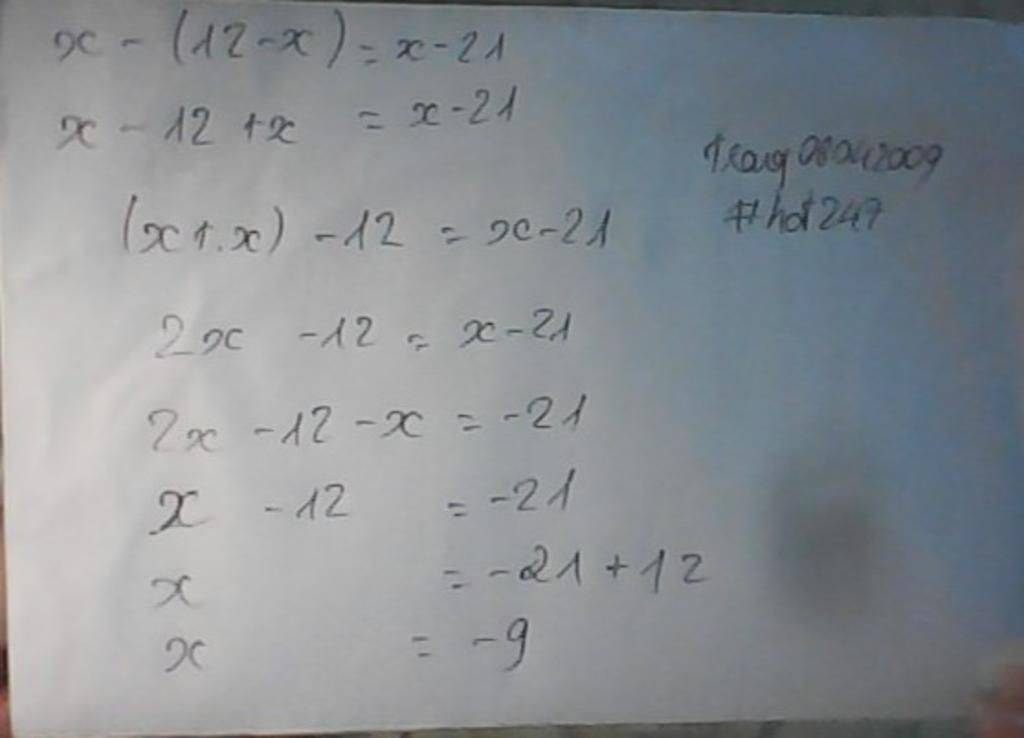 x - (12 - x) = x - 21
x - 12 + x = x - 21
Trang08042009
#hot247
(x + x) - 12 = x - 21
2x - 12 = x - 21
2x - 12 - x = -21
x - 12 = -21
x = -21 + 12
x = -9